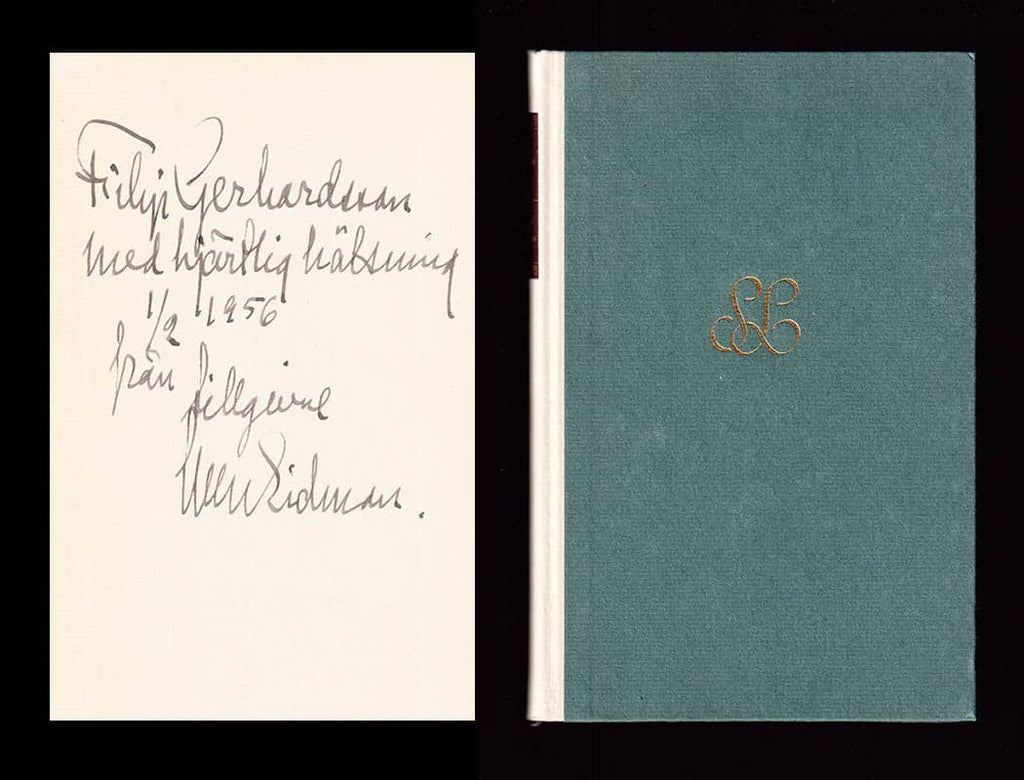 Filip Gerhardsson
med hjärtlig hälsning
1/2 1956
från
tillgivne
Sven Lidman.
SL